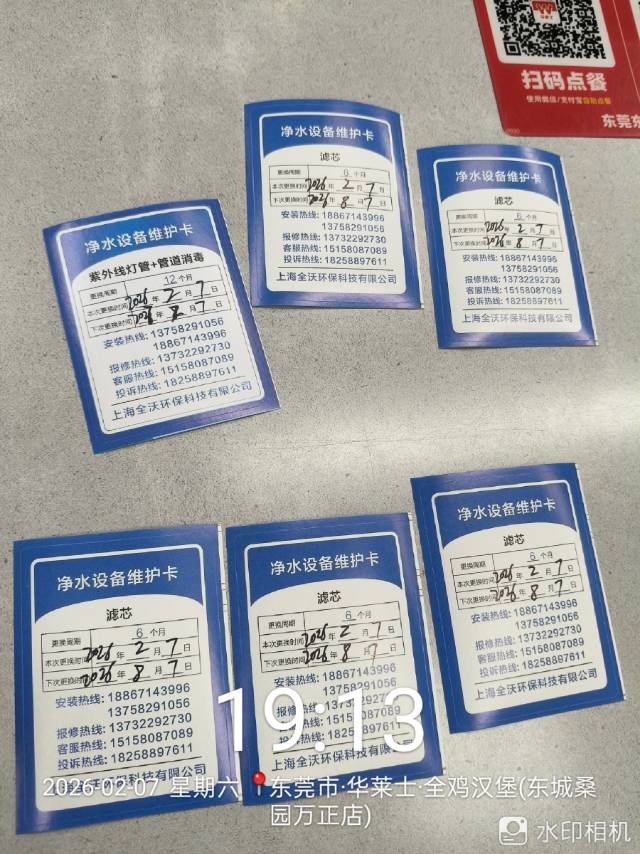 扫码点餐
使用微信/支付宝自助点餐
东莞东
净水设备维护卡
滤芯
更换周期 6 个月
本次更换时间 2026 年 2 月 7 日
下次更换时间 2026 年 8 月 7 日
安装热线: 18867143996
13758291056
报修热线: 13732292730
客服热线: 15158087089
投诉热线: 18258897611
上海全沃环保科技有限公司
净水设备维护卡
滤芯
更换周期 6 个月
本次更换时间 2026 年 2 月 7 日
下次更换时间 2026 年 8 月 7 日
安装热线: 18867143996
13758291056
报修热线: 13732292730
客服热线: 15158087089
投诉热线: 18258897611
上海全沃环保科技有限公司
净水设备维护卡
紫外线灯管+管道消毒
更换周期 12 个月
本次更换时间 2026 年 2 月 7 日
下次更换时间 2026 年 8 月 7 日
安装热线: 13758291056
18867143996
报修热线: 13732292730
客服热线: 15158087089
投诉热线: 18258897611
上海全沃环保科技有限公司
净水设备维护卡
滤芯
更换周期 6 个月
本次更换时间 2026 年 2 月 7 日
下次更换时间 2026 年 8 月 7 日
安装热线: 18867143996
13758291056
报修热线: 13732292730
客服热线: 15158087089
投诉热线: 18258897611
上海全沃环保科技有限公司
净水设备维护卡
滤芯
更换周期 6 个月
本次更换时间 2026 年 2 月 7 日
下次更换时间 2026 年 8 月 7 日
安装热线: 18867143996
13758291056
报修热线: 13732292730
客服热线: 15158087089
投诉热线: 18258897611
上海全沃环保科技有限公司
净水设备维护卡
滤芯
更换周期 6 个月
本次更换时间 2026 年 2 月 7 日
下次更换时间 2026 年 8 月 7 日
安装热线: 18867143996
13758291056
报修热线: 13732292730
客服热线: 15158087089
投诉热线: 18258897611
上海全沃环保科技有限公司
19:13
2026-02-07 星期六 东莞市·华莱士·全鸡汉堡(东城桑
园万正店)
水印相机